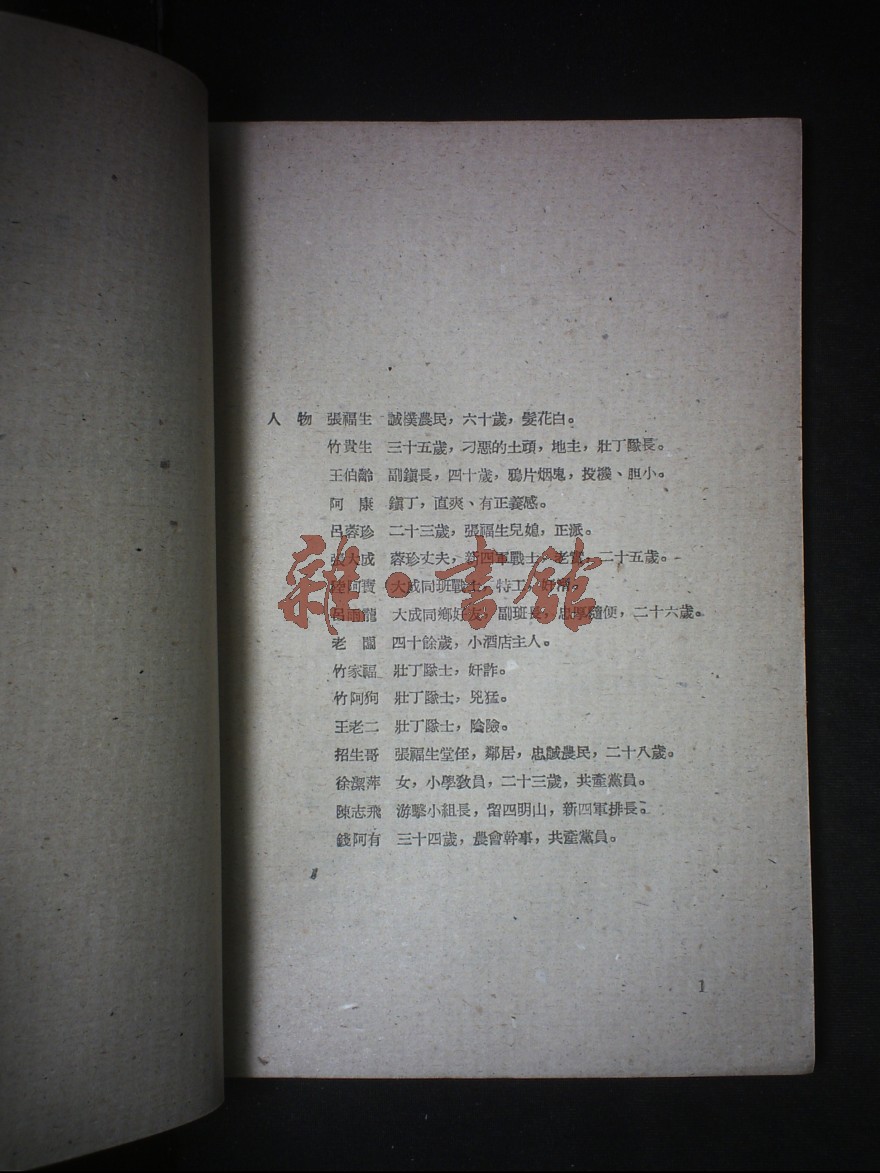 人　物　張福生　誠樸農民，六十歲，髮花白。
竹貴生　三十五歲，刁惡的土頭，地主，壯丁隊長。
王伯齡　副鎮長，四十歲，鴉片烟鬼，投機、胆小。
阿　康　鎮丁，直爽、有正義感。
呂蓉珍　二十三歲，張福生兒媳，正派。
張大成　蓉珍丈夫，新四軍戰士，老實，二十五歲。
陸阿寶　大成同班戰士，特工，奸滑。
呂雨龍　大成同鄉好友，副班長，忠厚隨便，二十六歲。
老　闆　四十餘歲，小酒店主人。
竹家福　壯丁隊士，奸詐。
竹阿狗　壯丁隊士，兇猛。
王老二　壯丁隊士，陰險。
招生哥　張福生堂侄，鄰居，忠誠農民，二十八歲。
徐潔萍　女，小學敎員，二十三歲，共產黨員。
陳志飛　游擊小組長，留四明山，新四軍排長。
錢阿有　三十四歲，農會幹事，共產黨員。
雜·書館
1